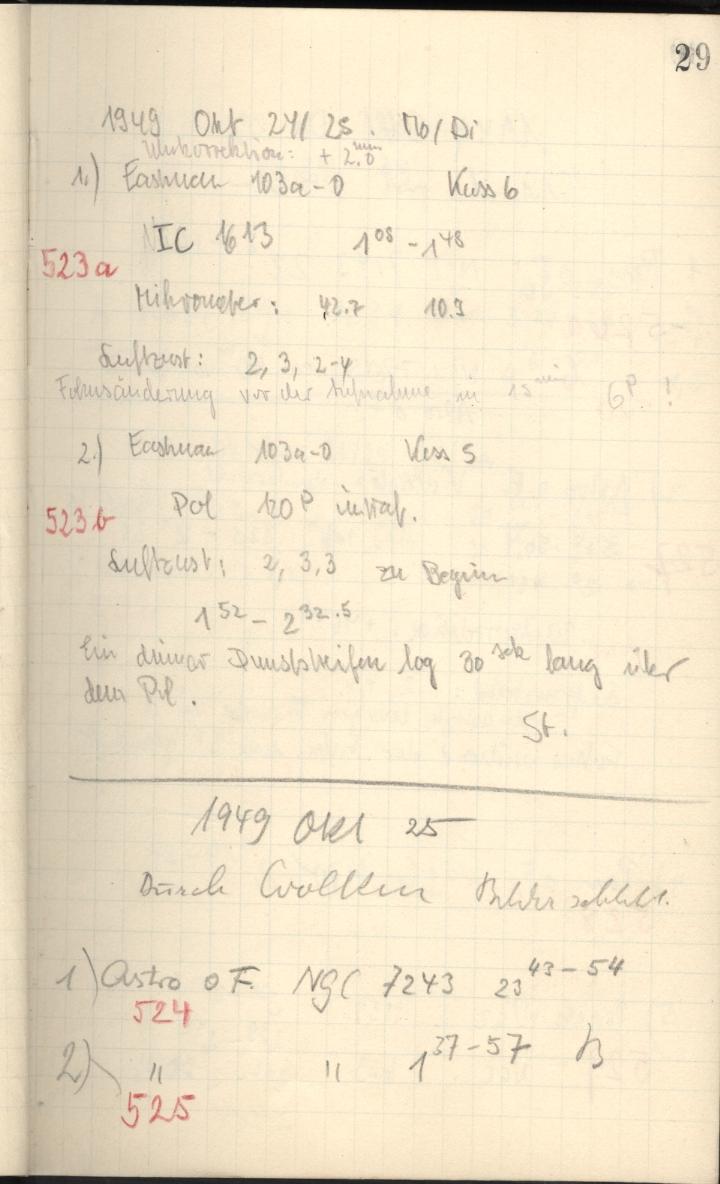 29
1949 Okt 24/25. Mo/Di
Uhrkorrektion: + 2.0 min
1.) Eastman 103a-0 Kass 6
IC 1613 1 08 - 1 48
523a
Mikrometer: 42.7 10.9
Luftzust: 2, 3, 2-4
Fokusänderung vor der Aufnahme in 15 min 6P !
2.) Eastman 103a-0 Kass 5
Pol 120P intraf.
523b
Luftzust: 2, 3,3 zu Beginn
1 52 - 2 32.5
Ein dünner Dunststreifen lag 30 sek lang über
dem Pol.
St.
1949 Okt 25
Durch Wolken Bilder schlecht.
1) Astro o F. NGC 7243 23 43-54
524
2) " " 1 37-57 B
525